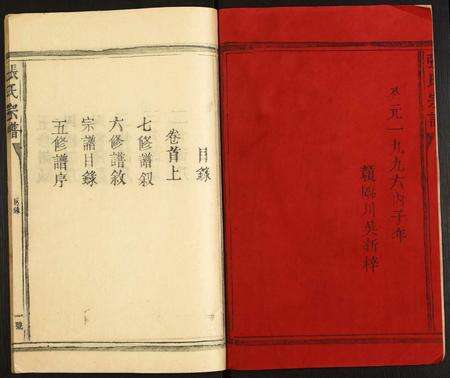 張氏宗譜
公元一九九六丙子年
贛臨川吳新梓
目錄
卷首上
七修譜叙
六修譜敘
宗譜目錄
五修譜序
張氏宗譜
目錄
一號